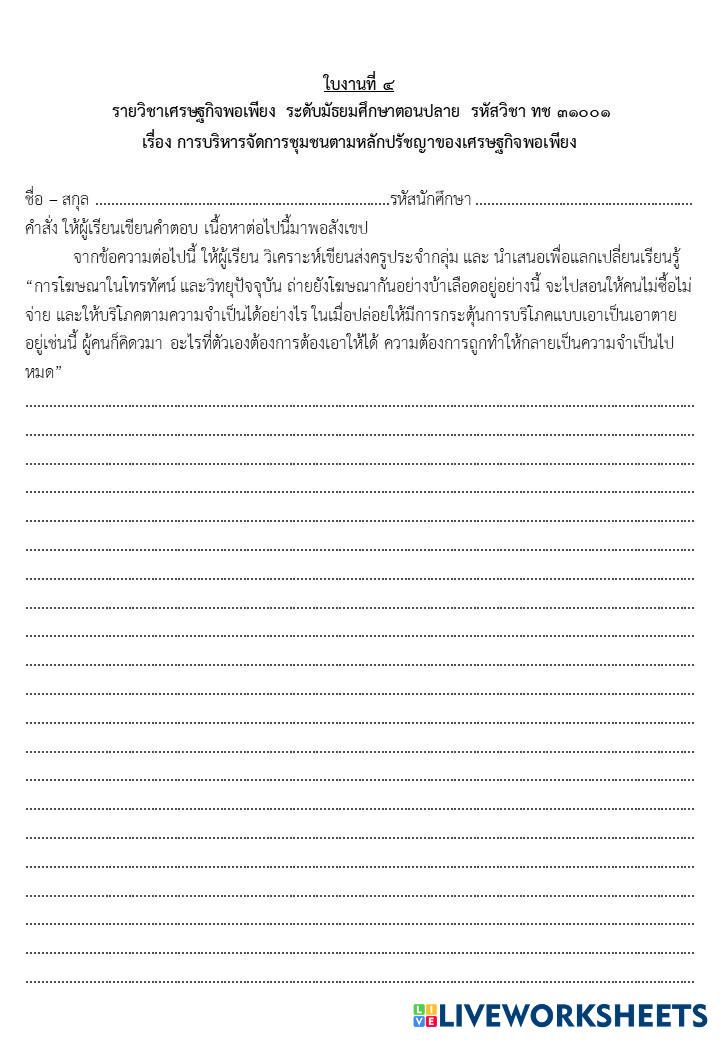 ใบงานที่ ๔
รายวิชาเศรษฐกิจพอเพียง ระดับมัธยมศึกษาตอนปลาย รหัสวิชา ทช ๓๑๐๐๑
เรื่อง การบริหารจัดการชุมชนตามหลักปรัชญาของเศรษฐกิจพอเพียง
ชื่อ – สกุล ........................................................................รหัสนักศึกษา .....................................................
คำสั่ง ให้ผู้เรียนเขียนคำตอบ เนื้อหาต่อไปนี้มาพอสังเขป
จากข้อความต่อไปนี้ ให้ผู้เรียน วิเคราะห์เขียนส่งครูประจำกลุ่ม และ นำเสนอเพื่อแลกเปลี่ยนเรียนรู้
“การโฆษณาในโทรทัศน์ และวิทยุปัจจุบัน ถ่ายยังโฆษณากันอย่างบ้าเลือดอยู่อย่างนี้ จะไปสอนให้คนไม่ซื้อไม่
จ่าย และให้บริโภคตามความจำเป็นได้อย่างไร ในเมื่อปล่อยให้มีการกระตุ้นการบริโภคแบบเอาเป็นเอาตาย
อยู่เช่นนี้ ผู้คนก็คิดวมา อะไรที่ตัวเองต้องการต้องเอาให้ได้ ความต้องการถูกทำให้กลายเป็นความจำเป็นไป
หมด”
LIVEWORKSHEETS